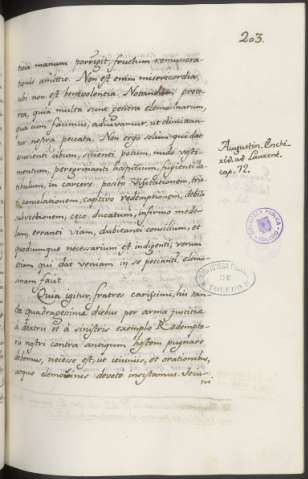 203.
tricia manum porrigit, fructum remunera-
tionis amittit. Non est enim misericordia,
ubi non est benevolentia. Notandum prete-
rea, quia multa sunt genera elemosinarum,
quę cum facimus, adiuvamur, ut dimittan-
tur nostra peccata. Non ergo solum qui dat
esurienti cibum, sitienti potum, nudo vesti-
mentum, peregrinanti hospitium, fugienti la-
tibulum, in carcere posito visitationem,
captivo redemptionem, debili
subvectionem, ceco ducatum, infirmo mede-
lam, erranti viam, dubitanti consilium, et
quodcumque necessarium est indigenti; verum
etiam qui dat veniam in se peccanti elemo-
sinam facit.
Quia igitur, fratres carissimi, his sanc-
ta quadragesimę diebus per arma justitię
a dextris et a sinistris exemplo Redempto-
ris nostri contra antiquum hostem pugnare
debemus, necesse est, ut jejuniis, et orationibus,
atque elemosinis devote insistamus. Jeiu-
ni
Augustin. Enchi-
rid. ad Laurent.
cap. 72.
BIBLIOTECA
DE
TOLEDO